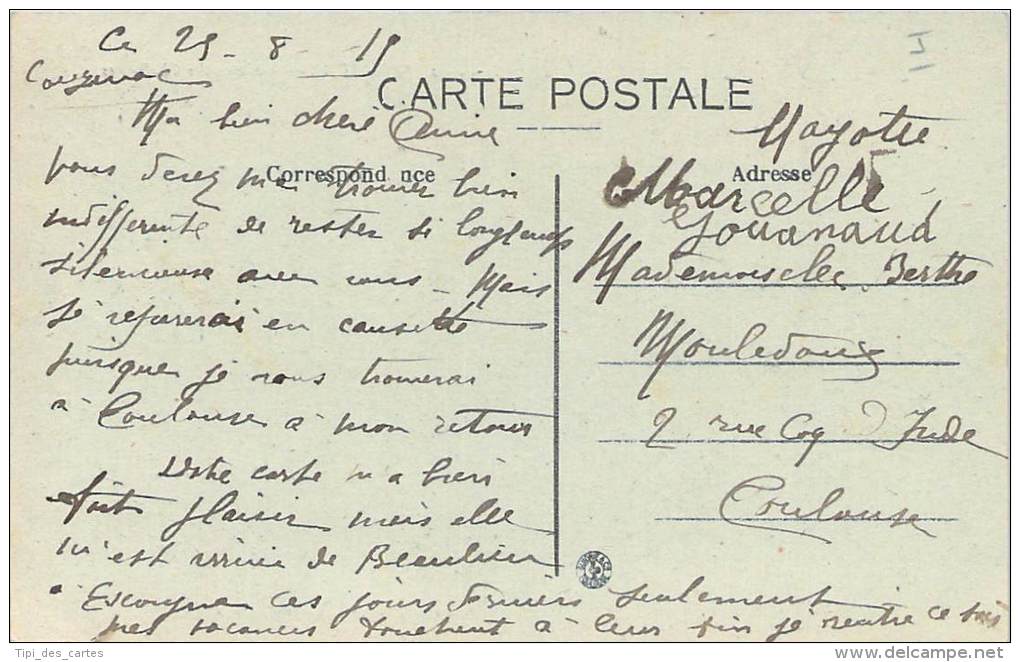 Ce 29-8-19
CARTE POSTALE
Ma bien chère Amie
vous devez me trouver bien
Correspond nce
indifférente de rester si longtemps
silencieuse avec vous - Mais
je réparerai en causette
puisque je vous trouverai
à Toulouse à mon retour
Votre carte m'a bien
fait plaisir mais elle
m'est venue de Beaulieu
à ces jours derniers seulement
mes vacances touchent à leur fin je rentre ce soir
Mayotte
Adresse
Marcelle
Jouanaud
Mademoiselle Berthe
2 rue Coq d'Inde
Toulouse
Tipi_des_cartes
www.delcampe.net